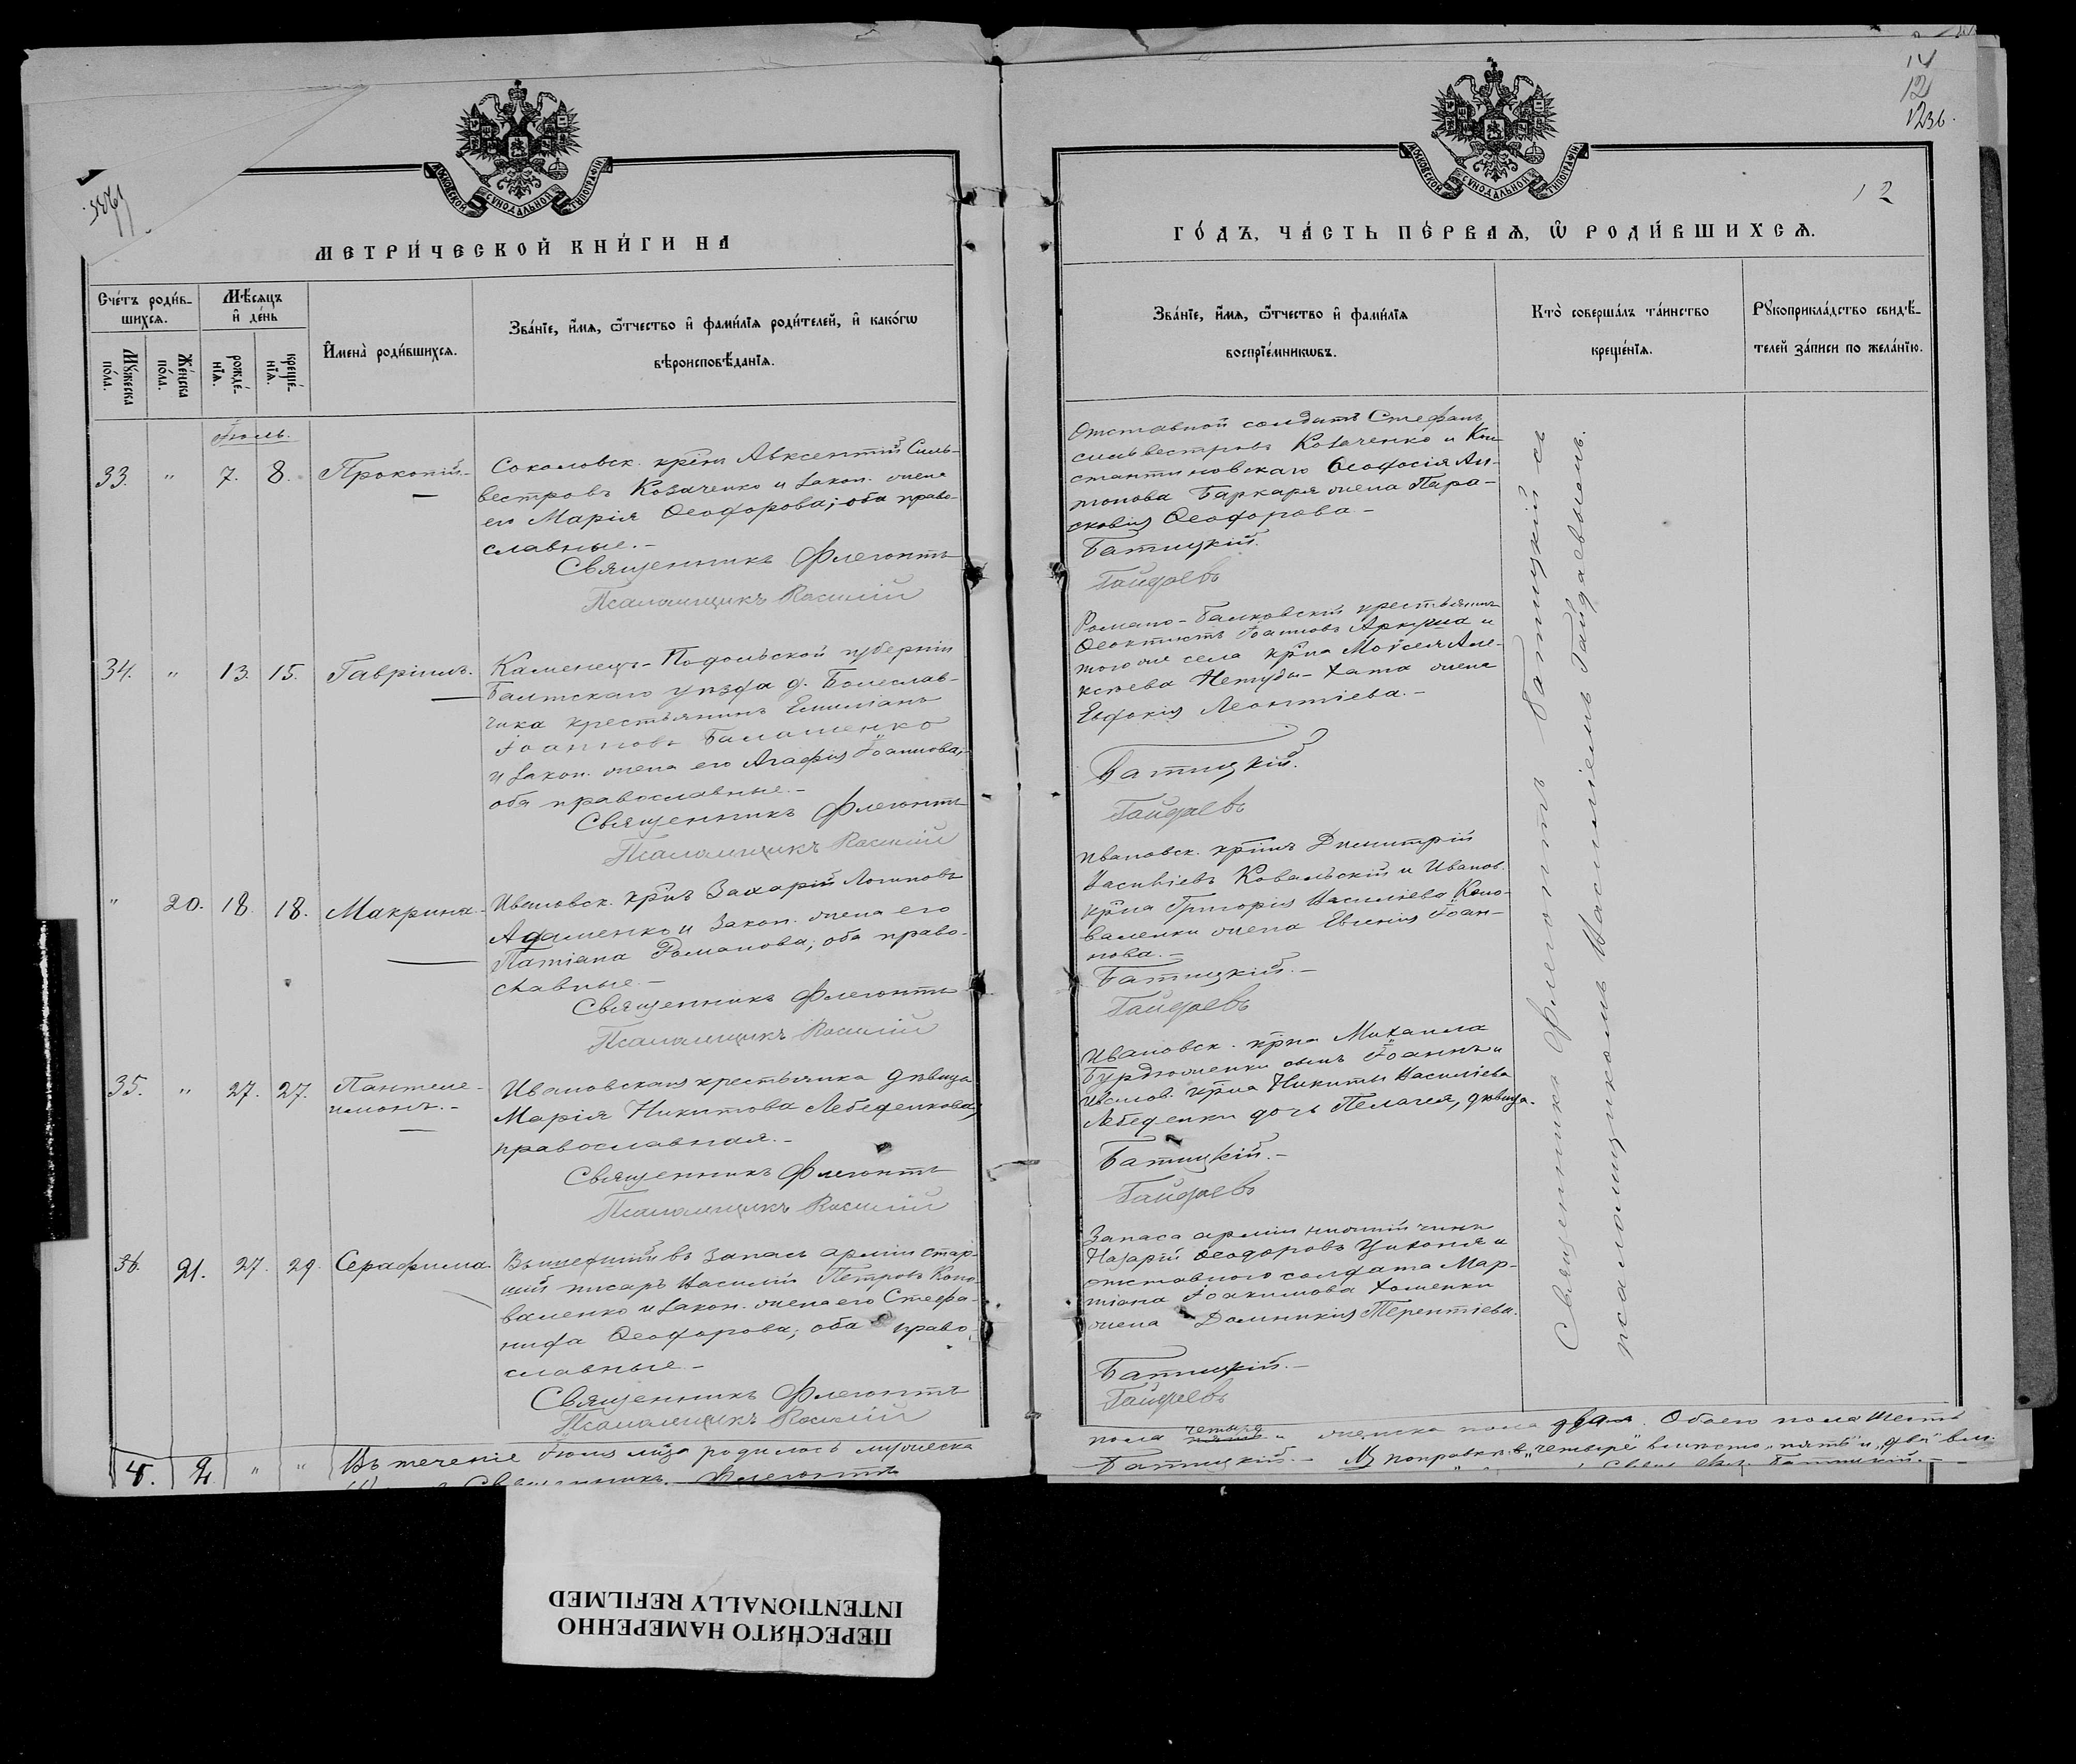 14
12
1236.
12
МОСКОВСКОЙ СѴНОДАЛЬНОЙ ТИПОГРАФІИ
МОСКОВСКОЙ СѴНОДАЛЬНОЙ ТИПОГРАФІИ
МЕТРИ́ЧЕСКОЙ КНИ́ГИ НА
Счéтъ роди́в-
шихсѧ.
Мѣ́сѧцъ
и҆ дéнь
Мꙋ́жеска
пóла.
Жéнска
пóла.
рождé-
нїѧ.
крещé-
нїѧ.
И҆менà роди́вшихсѧ.
Звáнїе, и҆́мѧ, ѻ҆́тчество и҆ фами́лїѧ роди́телей, и҆ какóгѡ
вѣроисповѣ́данїѧ.
Іюль.
33. " 7. 8. Прокопій.
Соколовск. кр҃нъ Авксентій Силь-
вестровъ Коваченко и закон. жена
его Марія Ѳеодорова; оба право-
славные.-
Священникъ Флегонтъ
Псаломщикъ Василій
34. " 13. 15. Гавріилъ.
Каменецъ-Подольской губерніи
Балтскаго уѣзда д. Болеслав-
чика крестьянинъ Емиліанъ
Іоанновъ Балашенко
и закон. жена его Агафія Іоаннова,
оба православные.-
Священникъ Флегонтъ
Псаломщикъ Василій
" 20. 18. 18. Макрина.
Ивановск. кр҃нъ Захарій Логиновъ
Адаменко и закон. жена его
Татіана Романова; оба право-
славные.-
Священникъ Флегонтъ
Псаломщикъ Василій
35. " 27. 27. Пантеле-
имонъ.-
Ивановская крестьянка дѣвица
Марія Никитова Лебеденкова,
православная.-
Священникъ Флегонтъ
Псаломщикъ Василій
36. 21. 27. 29. Серафима.
Вышедшій въ запасъ арміи стар-
шій писарь Василій Петровъ Коно-
валенко и закон. жена его Стефа-
нида Ѳеодорова; оба право-
славные.-
Священникъ Флегонтъ
Псаломщикъ Василій
4. 2. " " Въ теченіе Іюля м҃ца родилось мужеска
Священникъ Флегонтъ
ГÓДЪ, ЧÁСТЬ ПÉРВАѦ, Ѡ҆ РОДИ́ВШИХСѦ.
Звáнїе, и҆́мѧ, ѻ҆́тчество и҆ фами́лїѧ
воспрїéмникѡвъ.
Ктò совершáлъ тáинство
крещéнїѧ.
Рꙋкоприклáдство свидѣ́-
телей зáписи по желáнїю.
Отставной солдатъ Стефанъ
Сильвестровъ Коваченко и Кон-
стантиновскаго Ѳеодосія Ан-
тонова Баркаря жена Пара-
скевія Ѳеодорова.-
Батицкій.
Гайдаевъ
Романо-Балковскій крестьянинъ
Ѳеоктистъ Іоанновъ Аркуша и
того же села кр҃на Моѵсея Але-
ксѣева Непуды-Хата жена
Евдокія Леонтіева.-
Батицкій.
Гайдаевъ
Ивановск. кр҃нъ Димитрій
Васильевъ Ковальскій и Иванов.
кр҃на Григорія Василіева Коно-
валенки жена Евгенія Іоан-
нова.-
Батицкій.-
Гайдаевъ
Ивановск. кр҃на Михаила
Бурдюженки сынъ Іоаннъ и
Иванов. кр҃на Никиты Василіева
Лебеденки дочь Пелагея, дѣвица.
Батицкій.-
Гайдаевъ
Запаса арміи нижній чинъ
Назарій Ѳеодоровъ Циконя и
отставного солдата Мар-
тіана Іоакимова Хоменки
жена Домникія Терентіева.
Батицкій.-
Гайдаевъ
Священникъ Флегонтъ Батицкій съ
псаломщикомъ Василіемъ Гайдаевымъ.
четыре
пола пять и женска пола два. Обоего пола шесть
Батицкій.- поправкѣ "четыре" вмѣсто "пять" и "два" вм.
Батицкій.-
ПЕРЕСНЯТО НАМЕРЕННО
INTENTIONALLY REFILMED